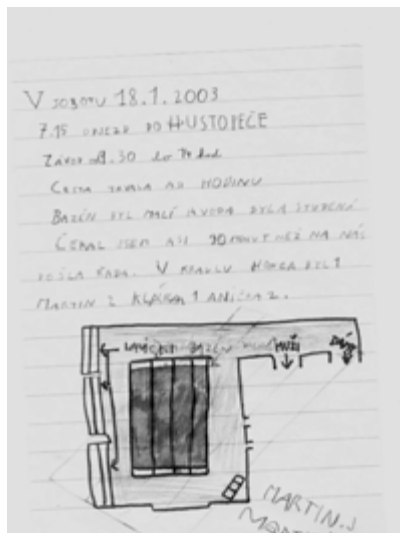 V SOBOTU 18.1.2003
7.15 ODJEZD DO HUSTOPEČE
ZÁVOD 8.30 do 14 hod
CESTA TRVALA ASI HODINU
BAZÉN BYL MALÍ A VODA BYLA STUDENÁ
ČEKAL JSEM ASI 90 MINUT NEŽ NA NÁS
DOŠLA ŘADA. V KRAULU HONZA BYL 1
MARTIN 2 KLÁRA 1 ANIČKA 2.
LAVIČKY BAZÉN MUŽI
MARTIN.J